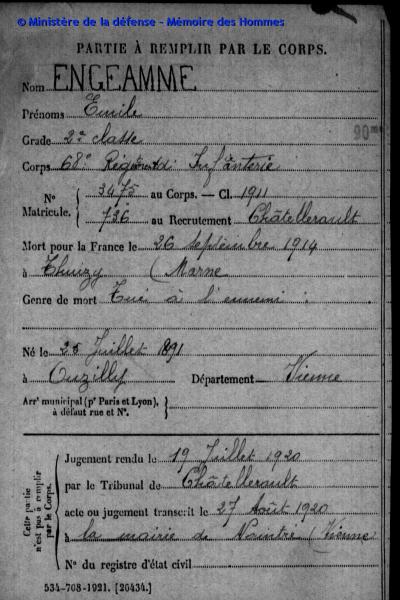 © Ministère de la défense - Mémoire des Hommes
PARTIE À REMPLIR PAR LE CORPS.
Nom ENGEAMME
Prénoms Emile
Grade 2e classe
Corps 68e Régiment d'Infanterie
N° Matricule. { 3475 au Corps. — Cl. 1911
736 au Recrutement Châtellerault
Mort pour la France le 26 septembre 1914
à Thuizy (Marne
Genre de mort Tué à l'ennemi
Né le 25 Juillet 1891
à Ouzilly Département Vienne
Arrt municipal (pr Paris et Lyon), à défaut rue et N°. }
Cette partie n'est pas à remplir par le Corps.
Jugement rendu le 19 Juillet 1920
par le Tribunal de Châtellerault
acte ou jugement transcrit le 27 Août 1920
à la mairie de Naintré (Vienne)
N° du registre d'état civil
534-708-1921. [26434.]